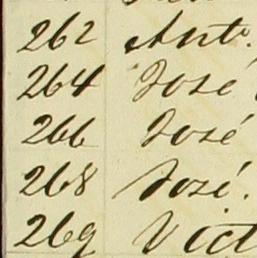 262 Ant.
264 José
266 José
268 José.
269 Vict